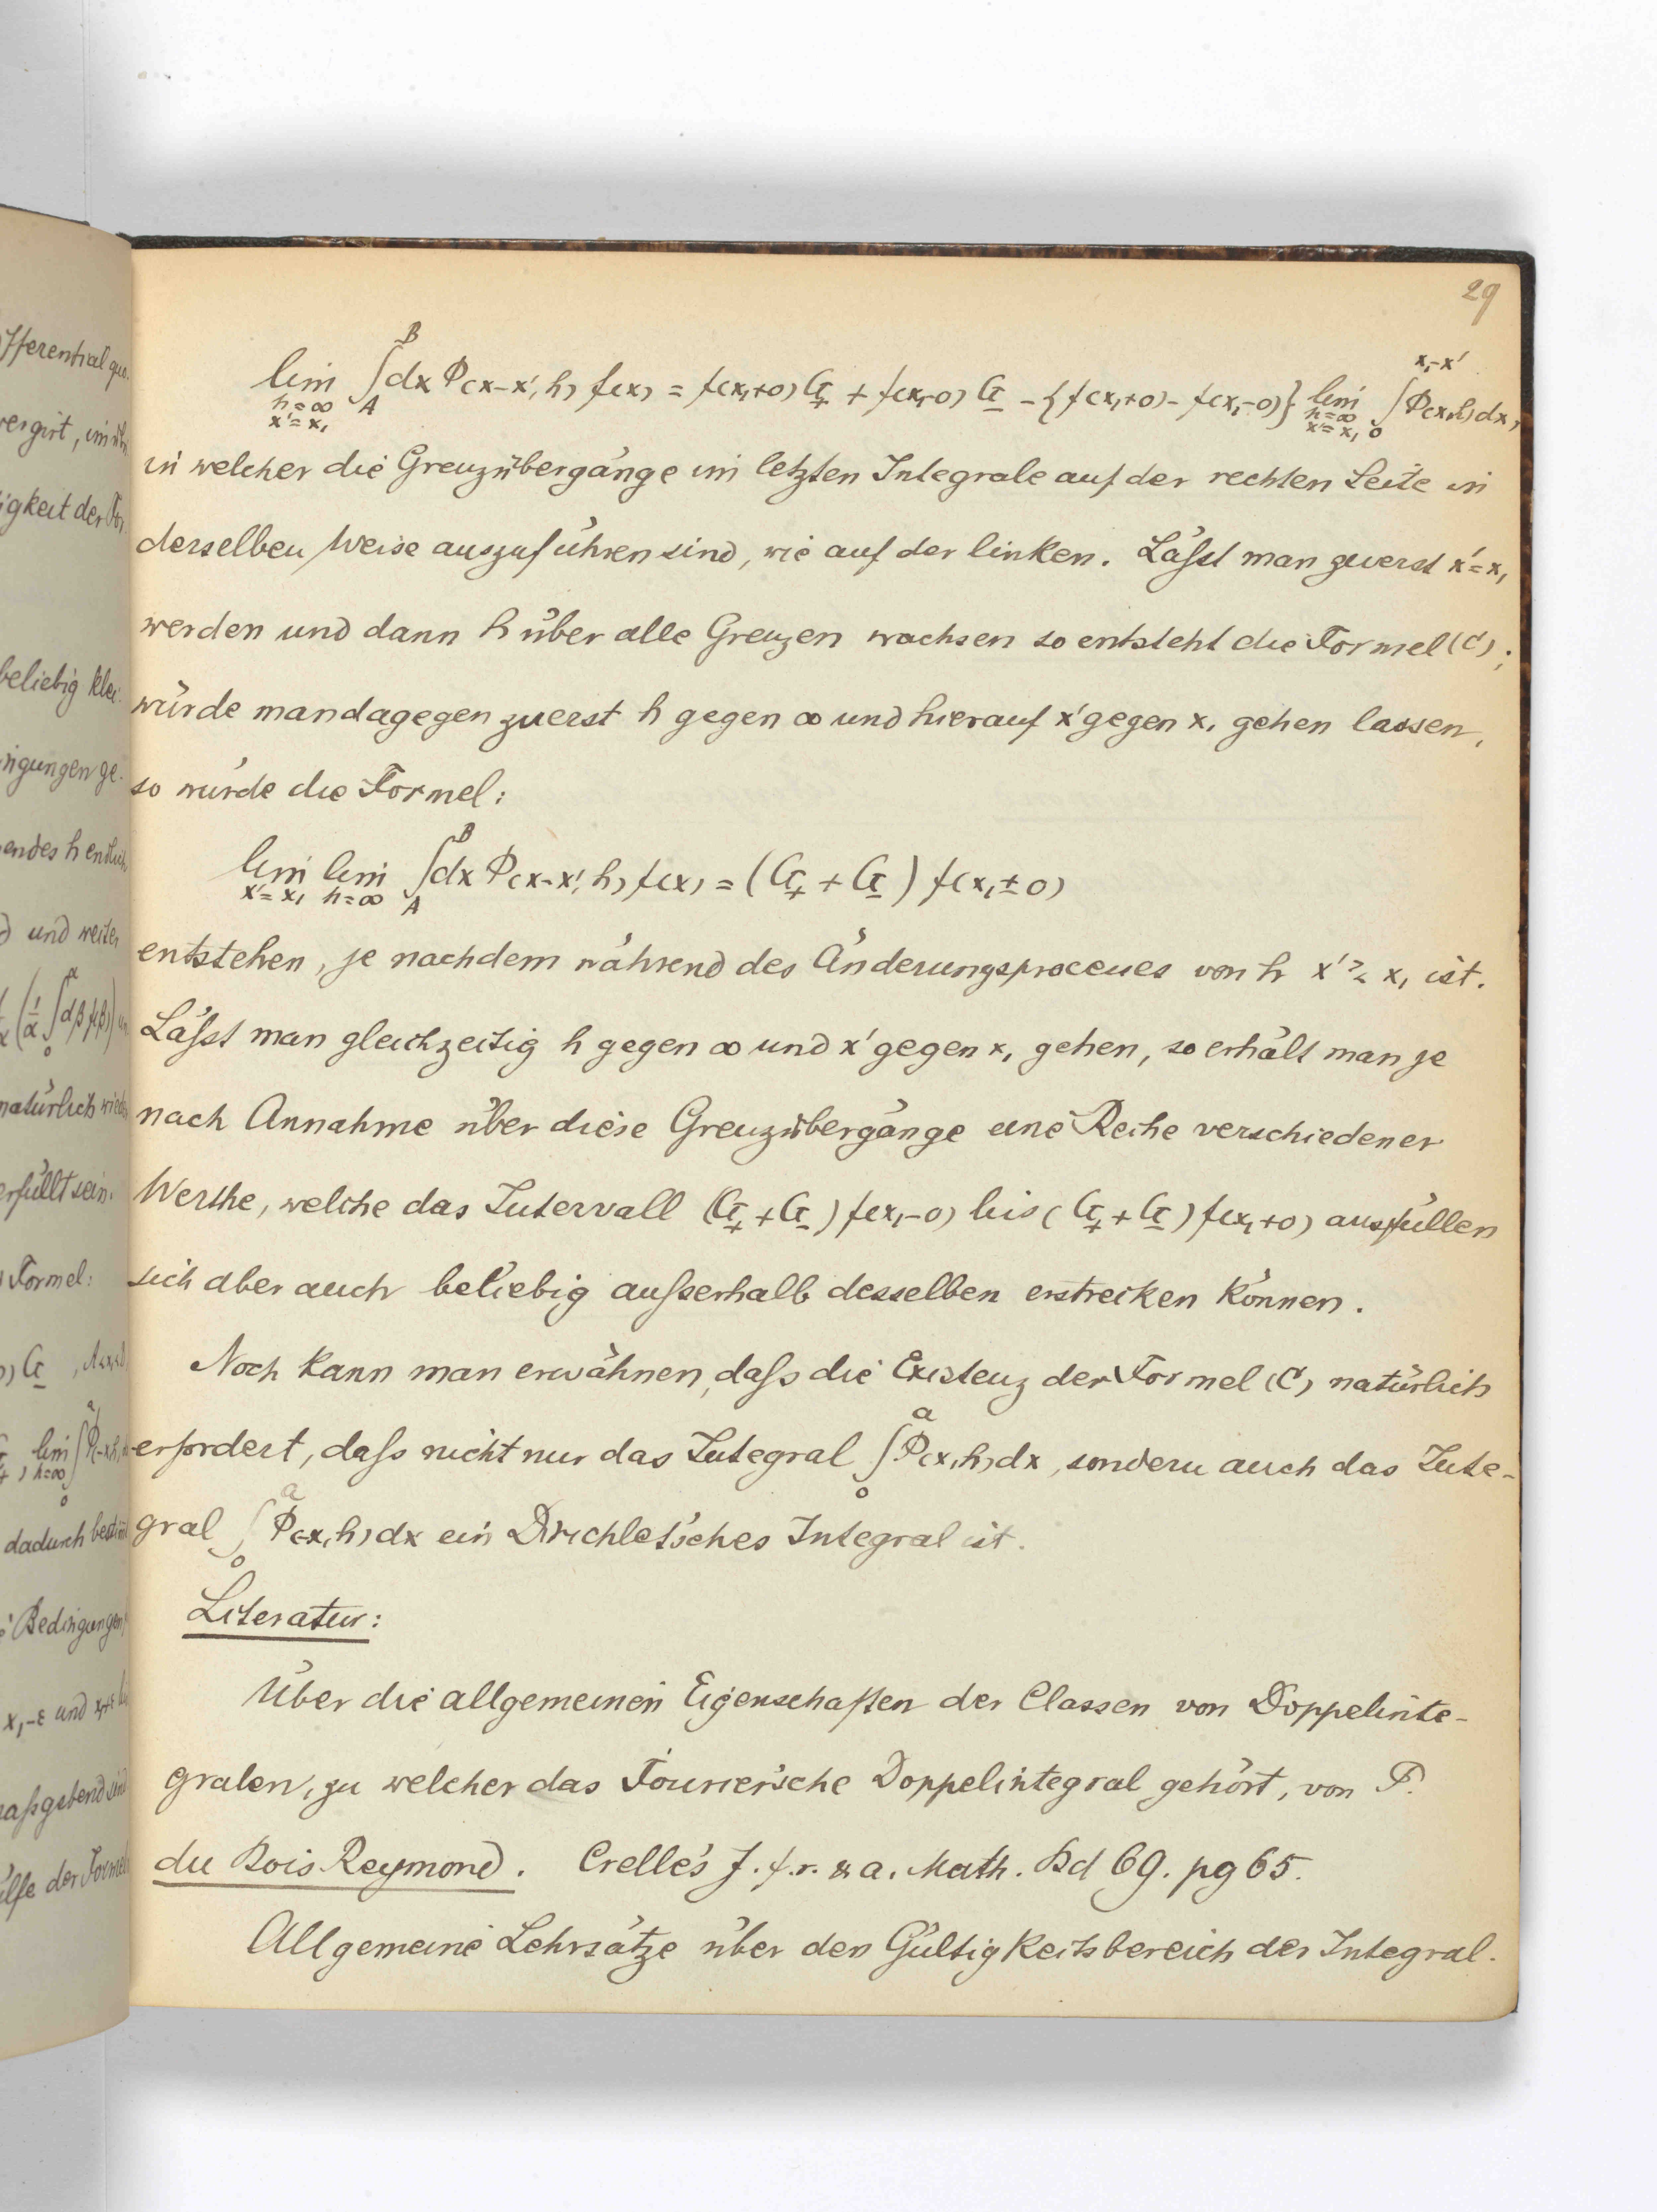 29
lim ∫_A^B dx Φ(x-x', h) f(x) = f(x₁+0) G₊ + f(x₁-0) G₋ - {f(x₁+0) - f(x₁-0)} lim ∫_0^{x₁-x'} Φ(x,h) dx,
h=∞ x'=x₁ h=∞ x'=x₁
in welcher die Grenzübergänge im letzten Integrale auf der rechten Seite in
derselben Weise auszuführen sind, wie auf der linken. Läßt man zuerst x'=x₁
werden und dann h über alle Grenzen wachsen so entsteht die Formel (C);
würde man dagegen zuerst h gegen ∞ und hierauf x' gegen x₁ gehen lassen,
so würde die Formel:
lim lim ∫_A^B dx Φ(x-x', h) f(x) = (G₊ + G₋) f(x₁±0)
x'=x₁ h=∞
entstehen, je nachdem während des Änderungsprocesses von h x' ≷ x₁ ist.
Läßt man gleichzeitig h gegen ∞ und x' gegen x₁ gehen, so erhält man je
nach Annahme über diese Grenzübergänge eine Reihe verschiedener
Werthe, welche das Intervall (G₊ + G₋) f(x₁-0) bis (G₊ + G₋) f(x₁+0) ausfüllen
sich aber auch beliebig außerhalb desselben erstrecken können.
Noch kann man erwähnen, daß die Existenz der Formel (C) natürlich
erfordert, daß nicht nur das Integral ∫_0^a Φ(x,h) dx, sondern auch das Inte-
gral ∫_0^a Φ(-x,h) dx ein Dirichlet'sches Integral ist.
Literatur:
Über die allgemeinen Eigenschaften der Classen von Doppelinte-
gralen, zu welcher das Fourier'sche Doppelintegral gehört, von P.
du Bois Reymond. Crelle's J. f. r. & a. Math. Bd 69. pg 65.
Allgemeine Lehrsätze über den Gültigkeitsbereich der Integral-